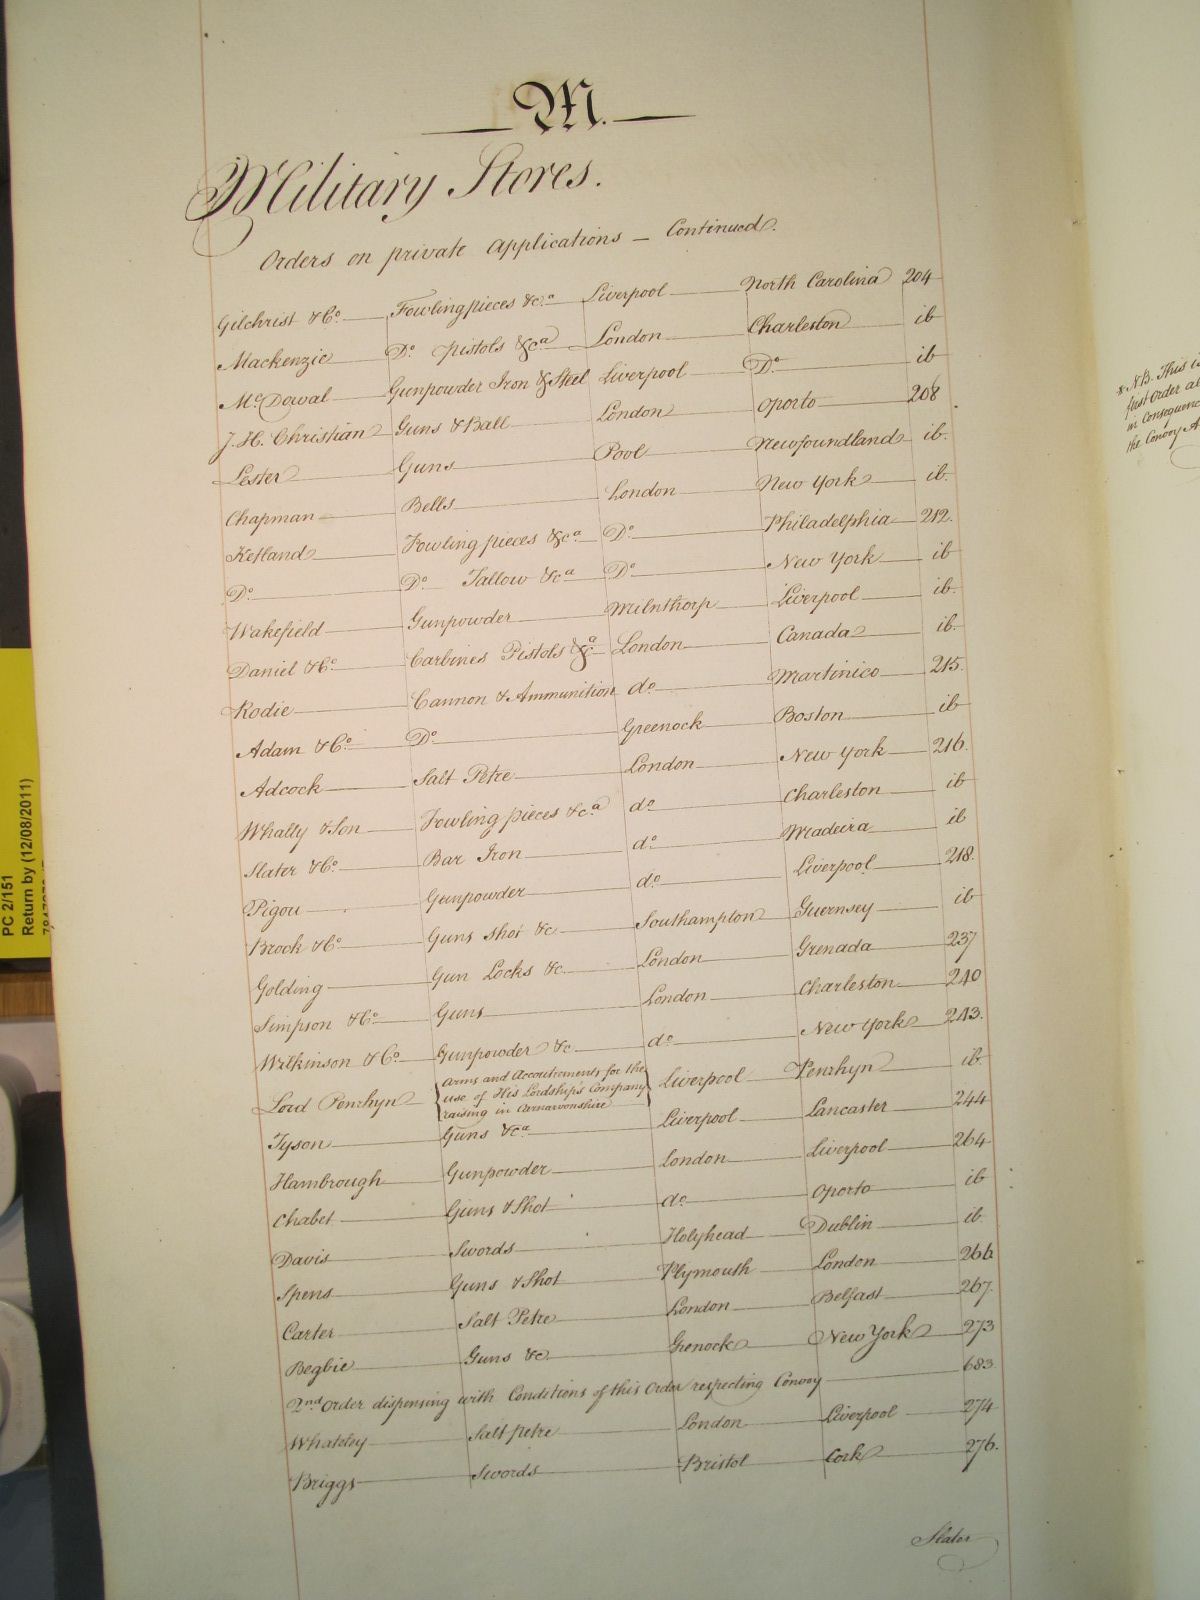 M.
Military Stores.
Orders on private Applications — Continued.
Gilchrist & Co. Fowling pieces &ca. Liverpool North Carolina 204
Mackenzie Do. Pistols &ca London Charleston ib
McDowal Gunpowder Iron & Steel Liverpool Do. ib
J. H. Christian Guns & Ball London Oporto 208
Lester Guns Pool Newfoundland ib.
Chapman Bells London New York ib.
Ketland Fowling pieces &ca Do. Philadelphia 212.
Do. Do. Tallow &ca Do. New York ib
Wakefield Gunpowder Milnthorp Liverpool ib.
Daniel & Co. Carbines Pistols &ca London Canada ib.
Rodie Cannon & Ammunition do. Martinico 215.
Adam & Co. Do. Greenock Boston ib
Adcock Salt Petre London New York 216.
Whally & Son Fowling pieces &ca do. Charleston ib
Slater & Co. Bar Iron do. Madeira ib
Pigou Gunpowder do. Liverpool 218.
Brock & Co. Guns Shot &c Southampton Guernsey ib
Golding Gun Locks &c London Grenada 237
Simpson & Co. Guns London Charleston 240
Wilkinson & Co. Gunpowder &c do. New York 243.
Lord Penrhyn { Arms and Accoutrements for the
use of His Lordship's Company
raising in Carnarvonshire } Liverpool Penrhyn ib.
Tyson Guns &ca Liverpool Lancaster 244
Hambrough Gunpowder London Liverpool 264
Chabet Guns & Shot do. Oporto ib
Davis Swords Holyhead Dublin ib.
Spens Guns & Shot Plymouth London 266
Carter Salt Petre London Belfast 267.
Begbie Guns &c Grenock New York 273
2nd Order dispensing with Conditions of this Order respecting Convoy 683
Whateley Salt petre London Liverpool 274
Briggs Swords Bristol Cork 276.
Slater
* NB. This i
first Order a
in consequenc
the Convoy A
PC 2/151
Return by (12/08/2011)